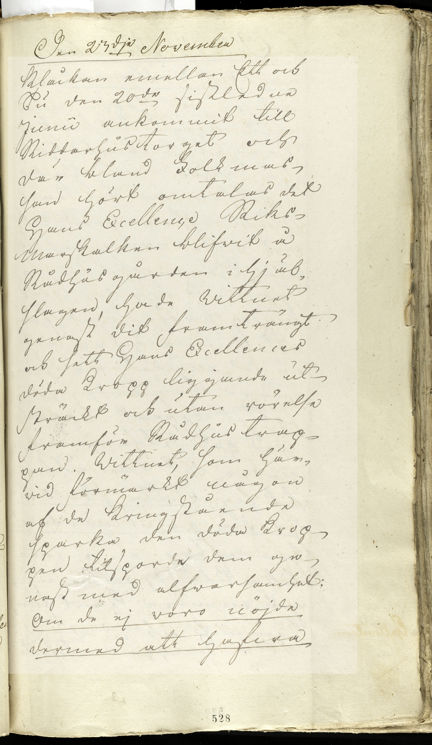 Den 23dje November
klåckan emellan Ett och
Tu den 20de sistledne
Junii ankommit till
Riddarhustorget och
där bland Folkmas-
san hört omtalas det
Hans Excellence Riks-
marskalken blifvit å
Rådhusgården ihjäl-
slagen, hade Wittnet
genast dit framträngt
och sett Hans Excellences
döda kropp liggande ut-
sträckt och utan rörelse
framför Rådhustrap-
pan. Wittnet, som här-
vid förmärkt någon
af de kringstående
sparka den döda krop-
pen tillsporde dem ge-
nast med alfwarsamhet:
om de ej voro nöjde
dermed att hafva
528